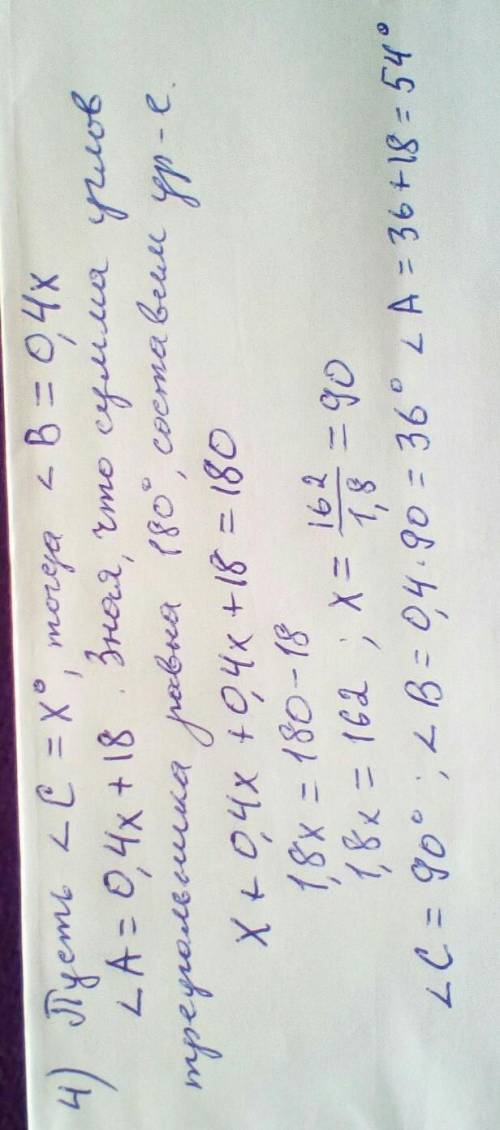 4) Пусть ∠C = x°, тогда ∠B = 0,4x
∠A = 0,4x + 18. Зная, что сумма углов
треугольника равна 180°, составим ур-е.
x + 0,4x + 0,4x + 18 = 180
1,8x = 180 - 18
1,8x = 162 ; x = 162/1,8 = 90
∠C = 90° ; ∠B = 0,4·90 = 36° ∠A = 36 + 18 = 54°